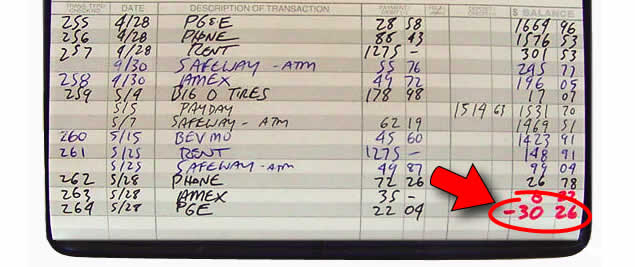 DATE DESCRIPTION OF TRANSACTION $ BALANCE
255 4/28 PG&E 28 58 1664 96
256 4/28 PHONE 88 43 1576 53
257 4/28 RENT 1275 – 301 53
4/30 SAFEWAY - ATM 55 76 245 77
258 4/30 AMEX 49 72 196 05
259 5/4 BIG O TIRES 178 98 17 07
5/5 PAYDAY 1514 63 1531 70
5/7 SAFEWAY - ATM 62 19 1469 51
260 5/15 BEVMO 45 60 1423 91
261 5/25 RENT 1275 – 148 91
5/25 SAFEWAY - ATM 49 87 99 04
262 5/28 PHONE 72 26 26 78
263 5/28 AMEX 35 – 8 22
264 5/28 PGE 22 04 -30 26